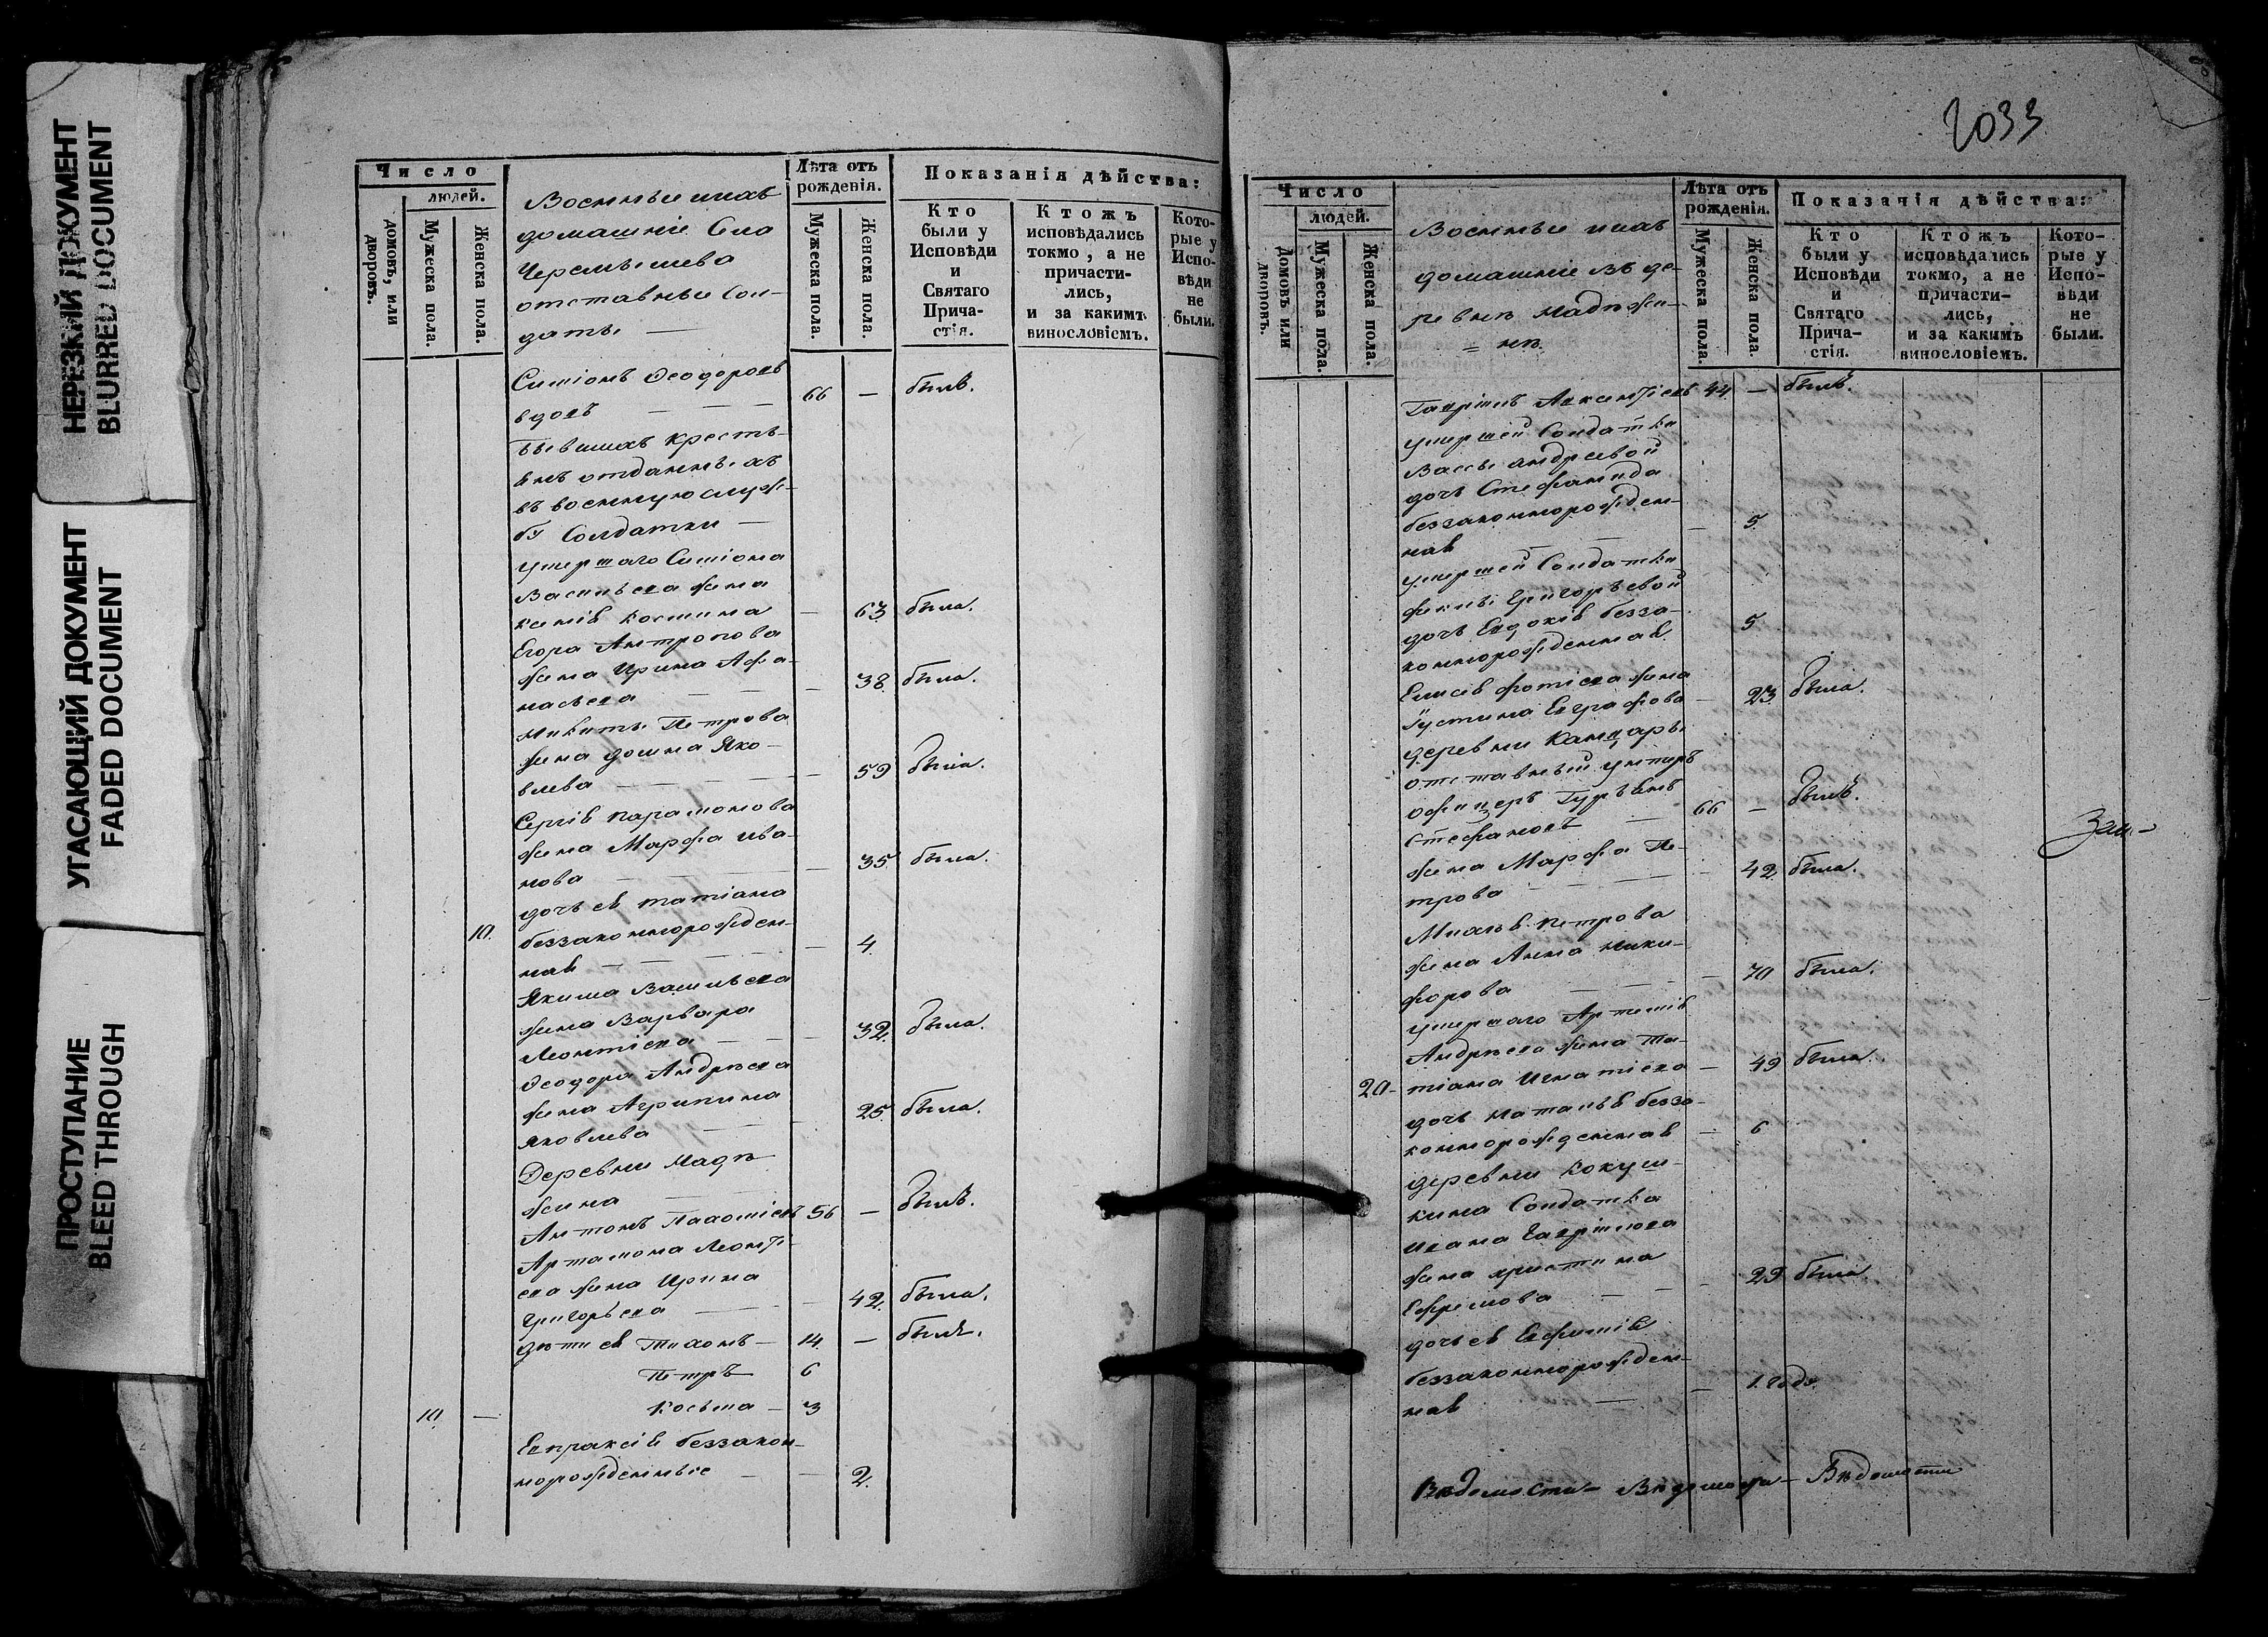 НЕРЕЗКИЙ ДОКУМЕНТ
BLURRED DOCUMENT
УГАСАЮЩИЙ ДОКУМЕНТ
FADED DOCUMENT
ПРОСТУПАНИЕ
BLEED THROUGH
Число
людей.
домовъ, или дворовъ.
Мужеска пола.
Женска пола.
Военные ихъ
домашніе Села
Черемышева
отставные Сол-
даты
Лѣта отъ рожденія.
Мужеска пола.
Женска пола.
Показанія дѣйства:
Кто были у Исповѣди и Святаго Прича- стія.
Ктожъ исповѣдались токмо, а не причасти- лись, и за какимъ винословіемъ.
Кото- рые у Испо- вѣди не были.
Симіонъ Ѳеодоровъ
вдовъ — 66 — былъ.
бывшихъ кресть-
янъ отданныхъ
въ военную служ-
бу Солдатки —
умершаго Симіона
Васильева жена
Космина — 63 была.
Егора Антропова
жена Ирина Афа-
насьева — 38. была.
Никиты Петрова
жена Домна Яко-
влева — 59 была.
Сергія Парамонова
жена Марфа Ива-
нова — 35 была.
дочь ея Татіана
10. беззаконнорожден-
ная — 4.
Якима Васильева
жена Варвара
Леонтіева — 32. была.
Ѳеодора Андрѣева
жена Агрипина
Яковлева — 25. была.
Деревни Надѣ-
жина
Антонъ Пахоміевъ 56 — былъ.
Артамона Леонть-
ева жена Ирина
Григорьева — 42. была.
дѣти ея Тихонъ — 14. — былъ.
Петръ 6
10. — Косьма — 3
Евпраксія беззакон-
норожденные — 2.
2033
Число
людей.
Домовъ или дворовъ.
Мужеска пола.
Женска пола.
Военные ихъ
домашніе въ де-
ревнѣ Надѣжи-
нѣ
Лѣта отъ рожденія.
Мужеска пола.
Женска пола.
Показанія дѣйства:
Кто были у Исповѣди и Святаго Прича- стія.
Ктожъ исповѣдались токмо, а не причасти- лись, и за какимъ винословіемъ.
Кото- рые у Испо- вѣди не были.
Гавріилъ Авксентіевъ 44 — былъ.
умершей Солдатки
Вассы Андреевой
дочь Стефанида
беззаконнорожден-
ная — 5.
умершей Солдатки
Феклы Григорьевой
дочь Евдокія безза-
коннорожденная 5
Елисея Фотіева жена
Іустина Евграфова — 23. была.
деревни
отставный унтеръ
офицеръ
Стефановъ — 66 — былъ.
жена Марфа Пе-
трова — 42. была.
Зам-
Петрова
жена Анна Ники-
форова — 70 была.
умершаго Артемія
Андрѣева жена Та-
20- тіана Игнатіева — 49 была.
дочь Наталья безза-
коннорожденная — 6
деревни Кокуш-
кина Солдатка
Ивана Гаврилова
жена Христина
Ефремова — 29 была.
дочь ея Евфимія
беззаконнорожден-
ная — 1. годъ.
Вѣдомости